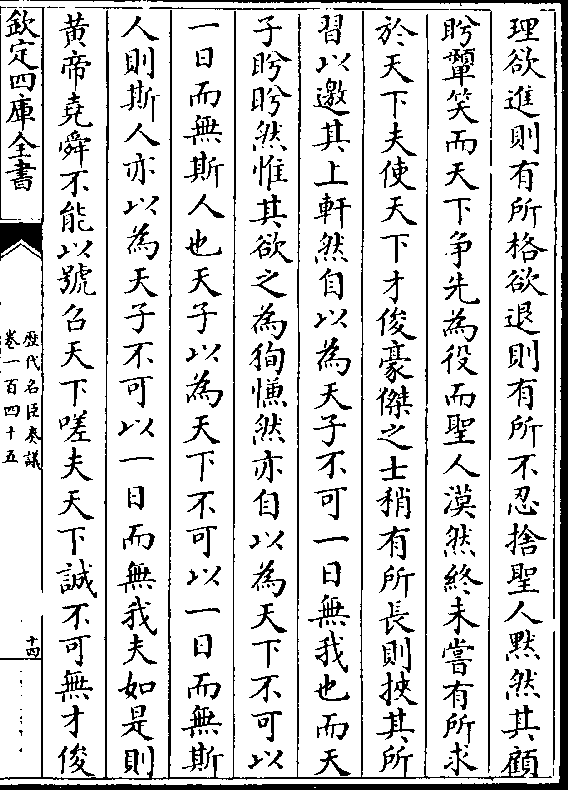 理欲進則有所格欲退則有所不忍捨聖人黙然其顧
盻顰笑而天下爭先為役而聖人漠然終未嘗有所求
於天下夫使天下才俊豪傑之士稍有所長則挾其所
習以邀其上軒然自以為天子不可一日無我也而天
子盻盻然惟其欲之為狥慊然亦自以為天下不可以
一日而無斯人也天子以為天下不可以一日而無斯
人則斯人亦以為天子不可以一日而無我夫如是則
黄帝堯舜不能以號召天下嗟夫天下誠不可無才俊
欽定四庫全書
歴代名臣奏議
卷一百四十五
十四